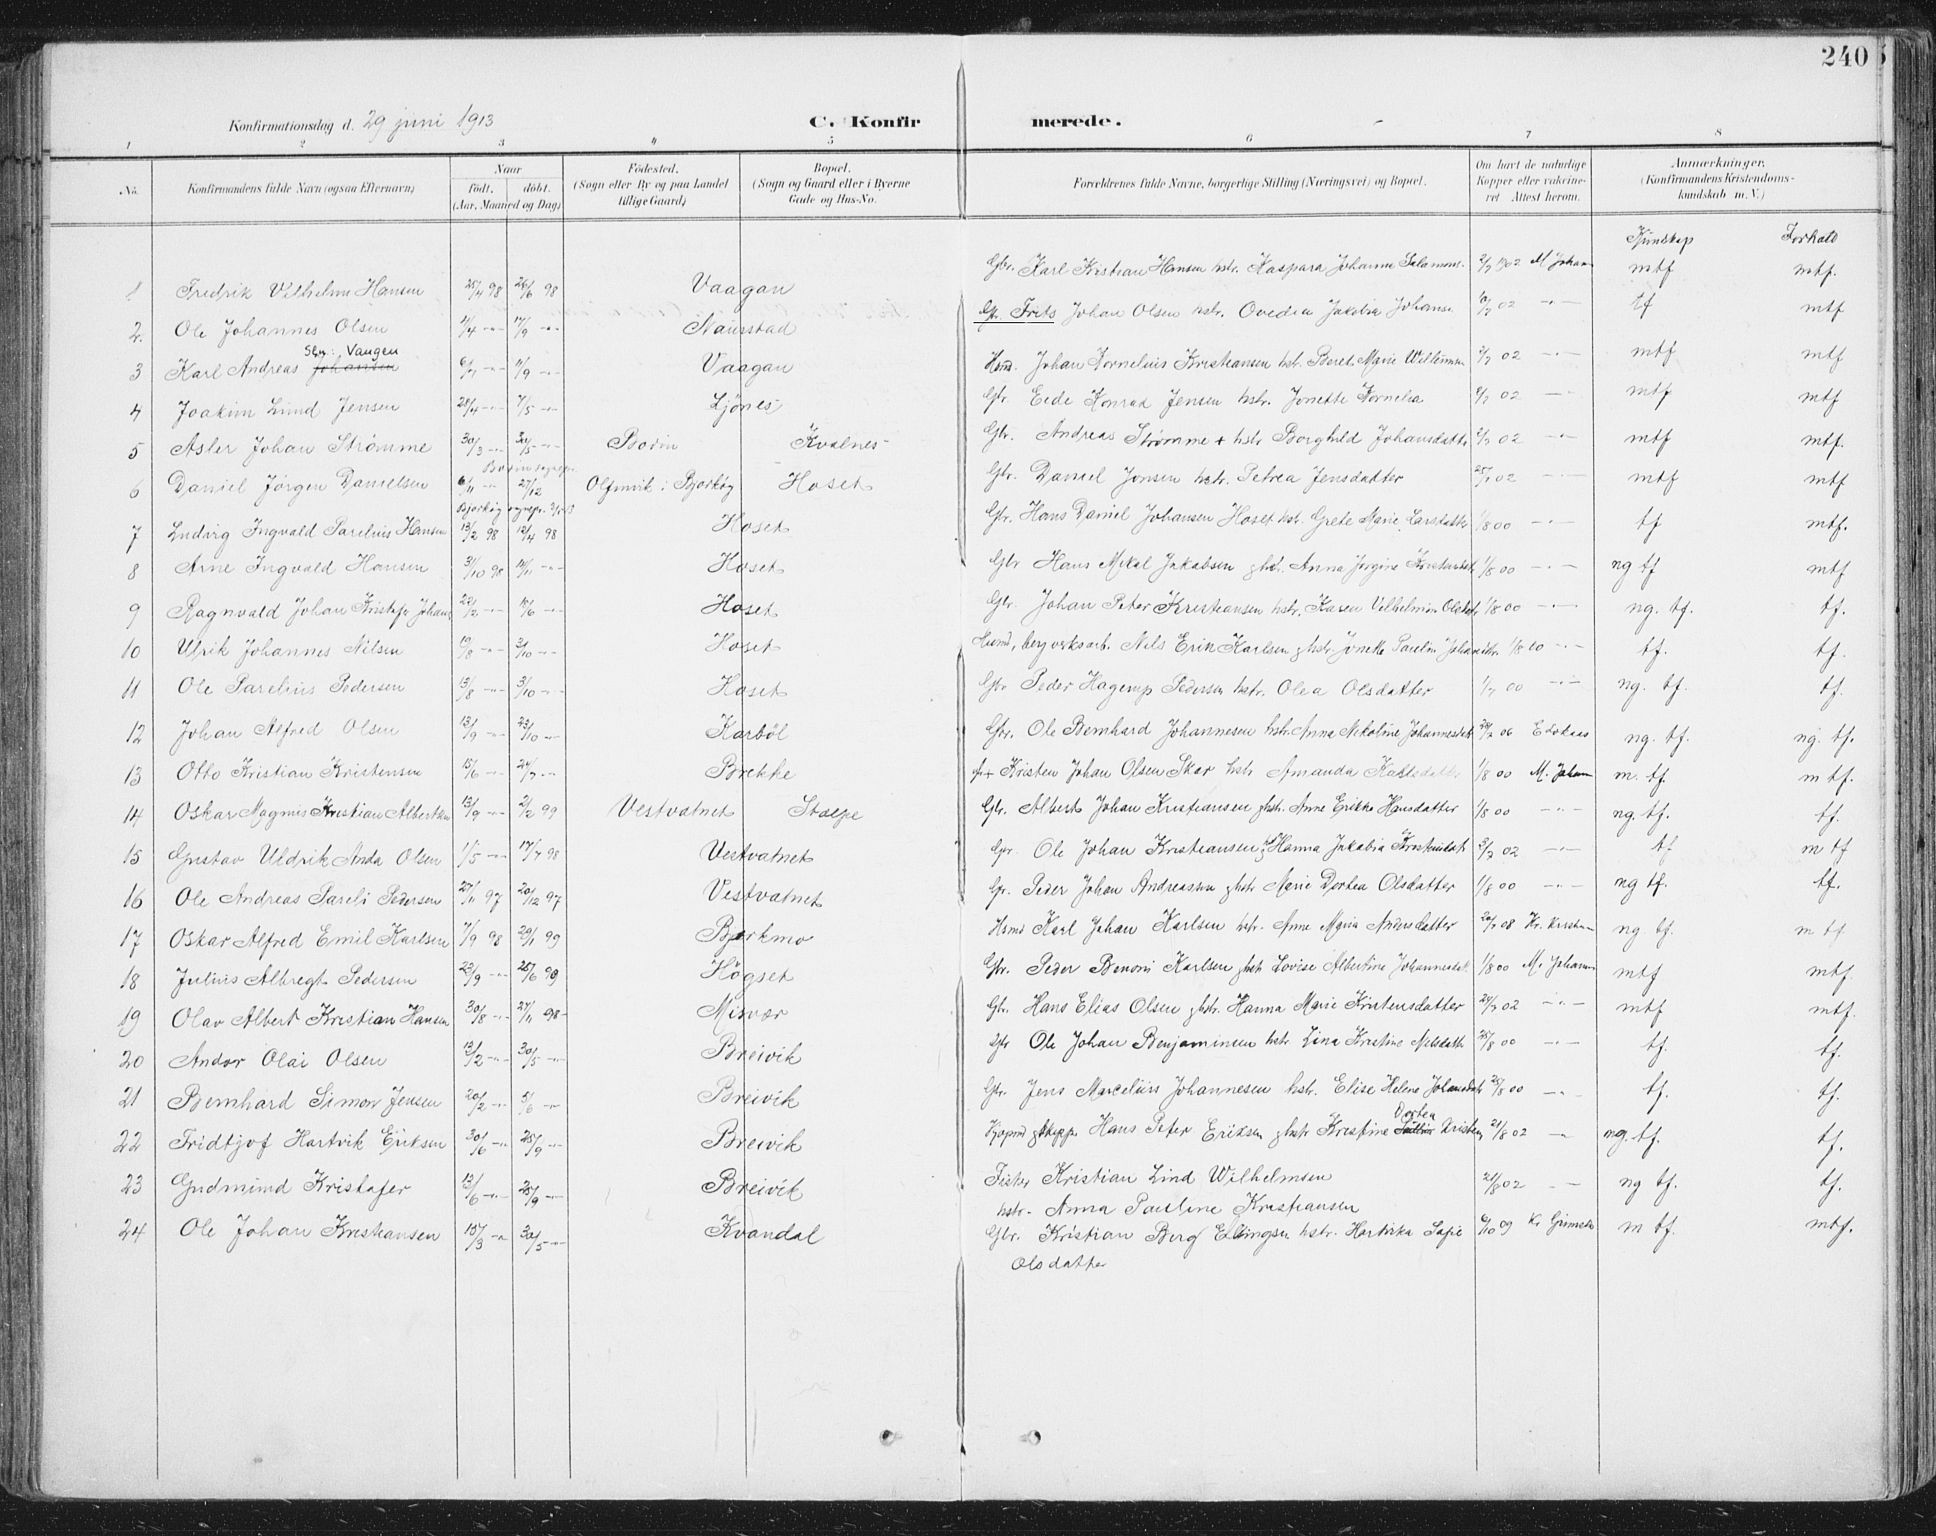 240
Konfirmationsdag d. 29 juni 1913 C. Konfirmerede.
1 2 3 4 5 6 7 8
No. Konfirmandens fulde Navn (ogsaa Efternavn) Naar født. døbt. (Aar, Maaned og Dag) Fødested. (Sogn eller By og paa Landet tillige Gaard) Bopæl. (Sogn og Gaard eller i Byerne Gade og Hus-No. Forældrenes fulde Navne, borgerlige Stilling (Næringsvei) og Bopæl. Om havt de naturlige Kopper eller vakcineret Attest herom. Anmærkninger. (Konfirmandens Kristendomskundskab m. V.)
Kundskap Forhold
1 Fredrik Vilhelm Hansen 25/4 98 26/6 98 Vaagan Gbr. Karl Kristian Hansen hstr. Kaspara Johanna Salamons. 2/7 1902 M Johan mtf mtf.
2. Ole Johannes Olsen 17/9 Naustad Gr. Frits Johan Olsen hstr. Ovedia Jakobia Johans. 02 tf mtf
Skr: Vaagen
3 Karl Andreas Johansen Vaagan Johan Kornelius Kristiansen hstr. Beret Marie Willumsen 2/7 02 mtf mtf
4 Joakim Lund Jensen 28/4 7/5 Ljønes Gbr. Eede Konrad Jensen hstr. Jonette Kornelia 2/7 02 mtf mtf
5 Asler Johan Strømme 30/3 30/5 Bodin Kvalnes Gbr. Andreas Strømme + hstr Borghild Johansdattr 2/7 02 mtf mtf.
6 Daniel Jørgen Danielsen 6/11 27/12 i Bjarkøy Hoset Gbr. Daniel Jonsen hstr. Petrea Jensdatter 25/7 02 mtf mtf
7 Ludvig Ingvald Parelius Hansen 13/2 98 12/4 98 Hoset Gbr. Hans Daniel Johansen Hoset hstr. Grete Marie Larsdattr 1/8 00 tf mtf.
8 Arne Ingvald Hansen 31/10 98 Hoset Gbr Hans Mikal Jakobsen ghstr. Anna Jørgine 1/8 00 ng tf mtf
9 Ragnvald Johan Kristofr Johans 22/2 Hoset Gbr. Johan Peter Kristiansen hstr. Karen Vilhelmin 1/8 00 ng. tf. tf.
10 Ulrik Johannes Nilsen 19/8 3/10 Hoset Husmd, bergverksarb. Nils Erik Karlsen ghstr. Jonette Parelin 1/8 10 tf. tf.
11 Ole Parelius Pedersen 13/8 3/10 Hoset Gbr Peder Hagerup Pedersen hstr. Olea Olsdatter 1/7 00 ng. tf. tf.
12 Johan Alfred Olsen 13/9 23/10 Karbøl Gbr. Ole Bernhard Johannesen hstr. Anna Nikoline Johannesdatr 06 ng. tf. ng. tf.
13 Otto Kristian Kristensen 15/6 24/7 Brekke + Kristen Johan Olsen Skar hstr Amanda Karlsdattr 1/8 00 M. Johan m. tf m tf.
14 Oskar Magnus Kristian Albertsen 13/9 2/2 99 Vestvatnet Stolpe Gbr. Albert Johan Kristiansen ghstr. Anne Erikka Hansdatter 1/8 00 ng. tf. tf.
15 Gustav Uldrik Anda Olsen 1/5 17/7 98 Vestvatnet Gbr. Ole Johan Kristiansen Hanna Jakobia 2/7 02 tf m tf
16 Ole Andreas Pareli Pedersen 27/11 97 20/12 97 Vestvatnet Gbr. Peder Johan Andreassen ghstr. Marie Dortea Olsdatter 1/8 00 ng tf. tf.
17 Oskar Alfred Emil Karlsen 7/9 98 29/1 99 Bjørkmo Hsmd Karl Johan Karlsen hstr. Anne Maria Andersdatter 08 Kr. Kristian ng tf. m tf
18 Julius Albregt Pedersen 23/9 25/6 99 Høgset Gbr. Peder Benoni Karlsen ghstr Lovise Albertine Johannesdat. 1/8 00 M. Johan mtf mtf.
19 Olav Albert Kristian Hansen 30/8 27/11 98 Misvær Gbr. Hans Elias Olsen ghstr. Hanna Marie Kristensdatter 02 mtf mtf.
20 Andor Olai Olsen 13/2 30/5 Breivik Gbr Ole Johan Benjaminsen hstr. Lina Kristine Nilsdattr 25/8 00 tf. tf.
21 Bernhard Simon Jensen 20/2 5/6 Breivik Gbr. Jens Marcelius Johannesen hstr. Elise Helene Johansdatr 25/8 00 tf. tf.
22 Fridtjof Hartvik Eriksen 30/6 25/9 Breivik Kjøpmd Hans Peter Eriksen ghstr Kristine Dortea 21/8 02 ng. tf. tf.
23 Gudmund Kristofer 13/6 25/9 Breivik Fisker Kristian Lind Wilhelmsen 21/8 02 ng tf. tf.
hstr. Anna Pauline Kristiansen
24 Ole Johan Kristiansen 15/3 30/5 Kvandal Gbr. Kristian Berg Ellingsen hstr. Hartvika Sofie 6/10 09 m tf. mtf.
Olsdatter